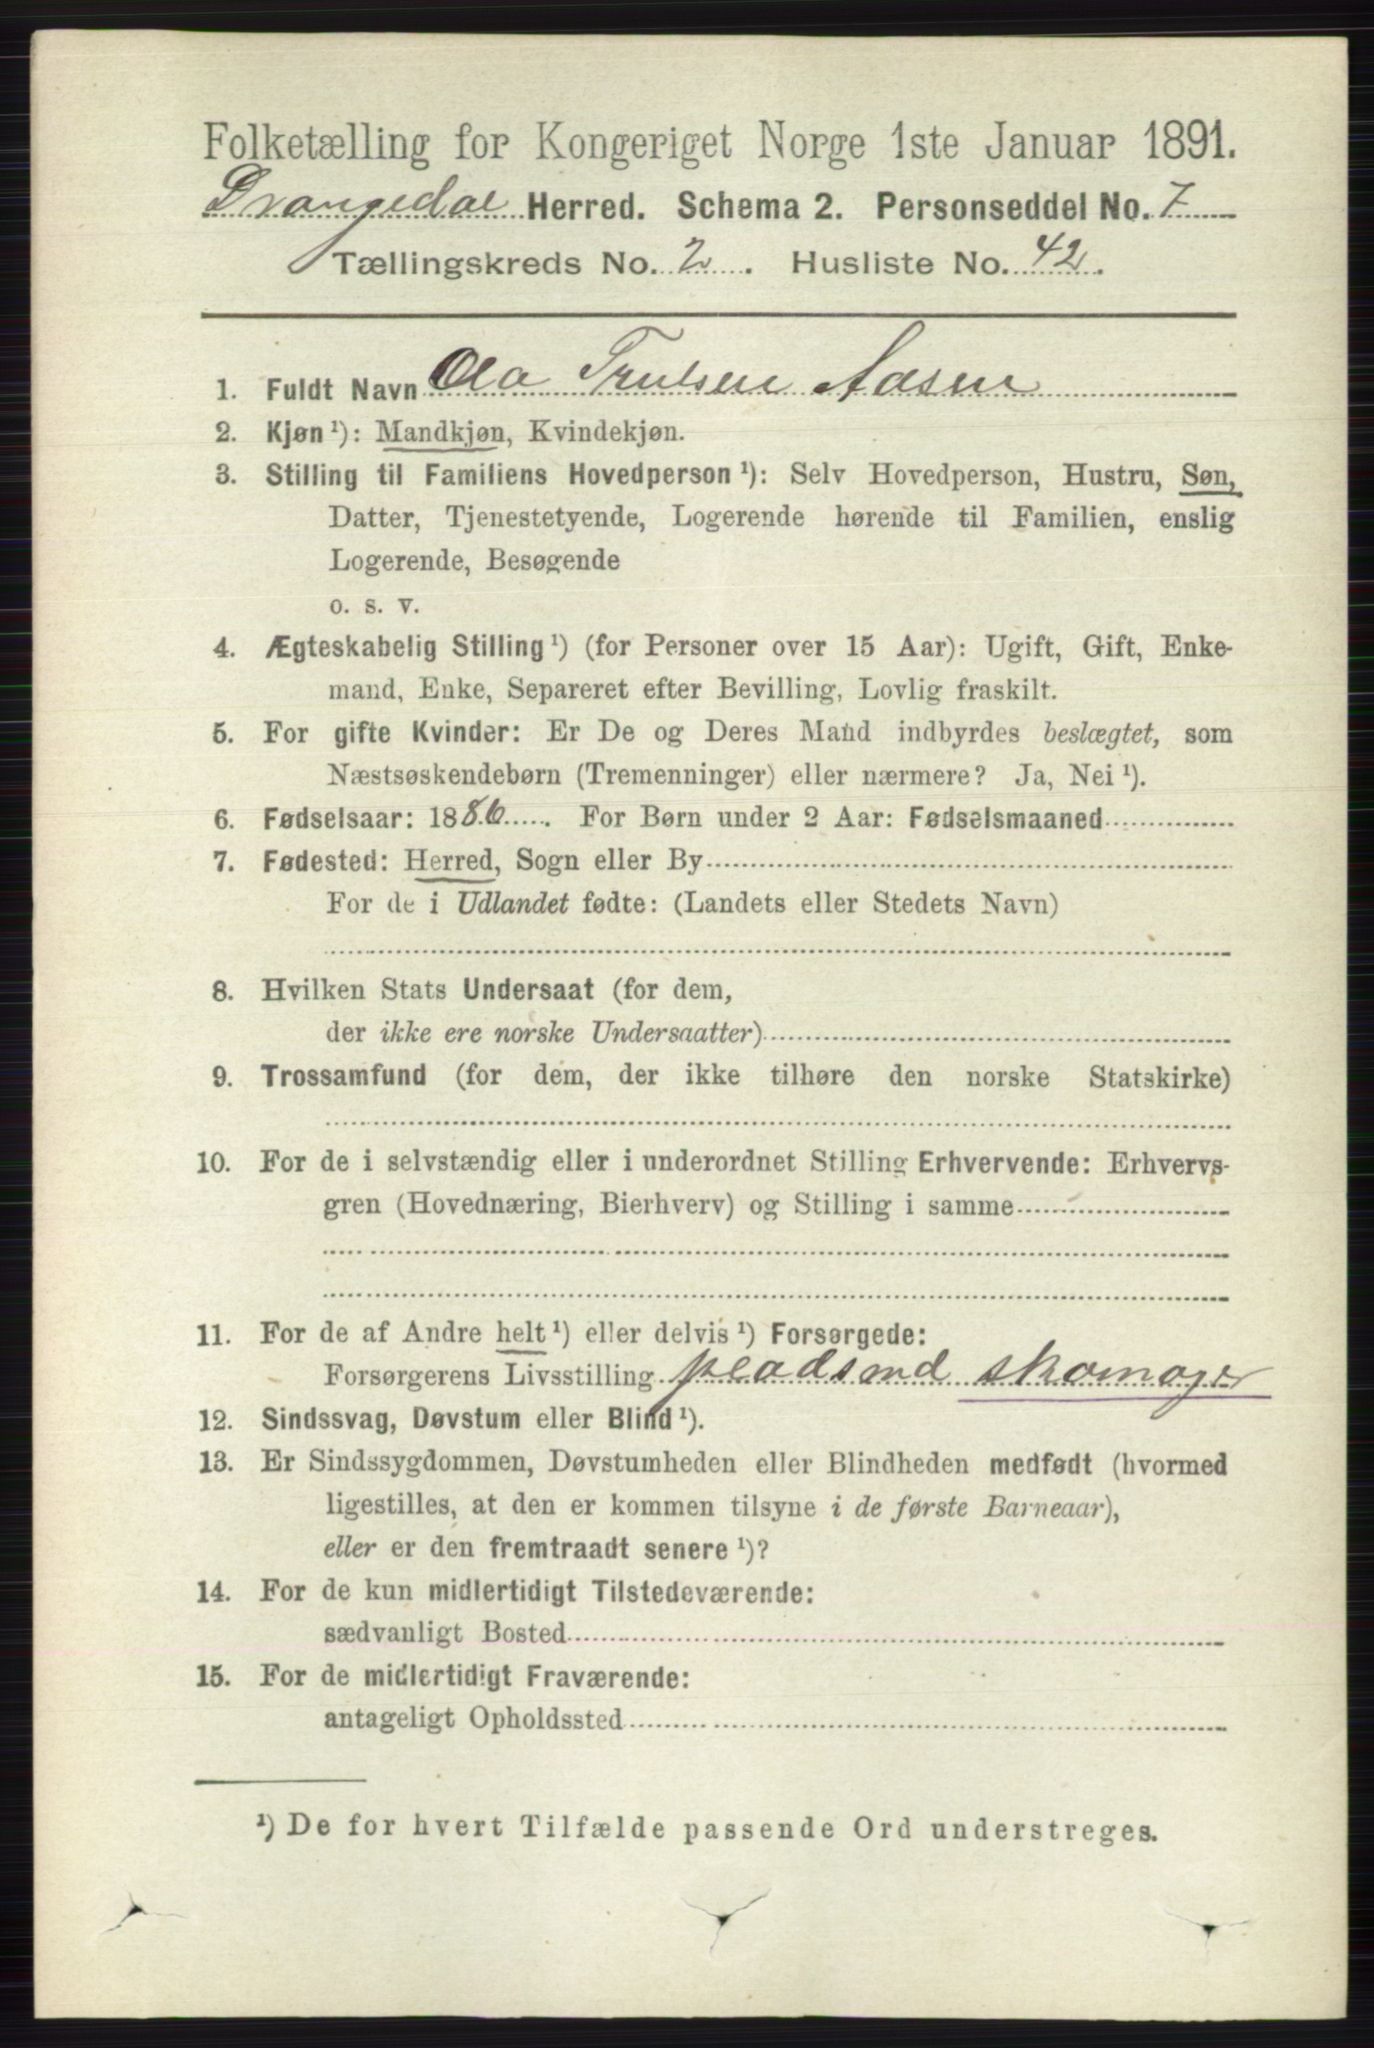 Folketælling for Kongeriget Norge 1ste Januar 1891.
Drangedal Herred. Schema 2. Personseddel No. 7
Tællingskreds No. 2. Husliste No. 42.
1. Fuldt Navn Ola Trulsen Aasen
2. Kjøn ¹): Mandkjøn, Kvindekjøn.
3. Stilling til Familiens Hovedperson ¹): Selv Hovedperson, Hustru, Søn,
Datter, Tjenestetyende, Logerende hørende til Familien, enslig
Logerende, Besøgende
o. s. v.
4. Ægteskabelig Stilling ¹) (for Personer over 15 Aar): Ugift, Gift, Enke-
mand, Enke, Separeret efter Bevilling, Lovlig fraskilt.
5. For gifte Kvinder: Er De og Deres Mand indbyrdes beslægtet, som
Næstsøskendebørn (Tremenninger) eller nærmere? Ja, Nei ¹).
6. Fødselsaar: 1886. For Børn under 2 Aar: Fødselsmaaned
7. Fødested: Herred, Sogn eller By
For de i Udlandet fødte: (Landets eller Stedets Navn)
8. Hvilken Stats Undersaat (for dem,
der ikke ere norske Undersaatter)
9. Trossamfund (for dem, der ikke tilhøre den norske Statskirke)
10. For de i selvstændig eller i underordnet Stilling Erhvervende: Erhvervs-
gren (Hovednæring, Bierhverv) og Stilling i samme
11. For de af Andre helt ¹) eller delvis ¹) Forsørgede:
Forsørgerens Livsstilling pladsmd skomager
12. Sindssvag, Døvstum eller Blind ¹).
13. Er Sindssygdommen, Døvstumheden eller Blindheden medfødt (hvormed
ligestilles, at den er kommen tilsyne i de første Barneaar),
eller er den fremtraadt senere ¹)?
14. For de kun midlertidigt Tilstedeværende:
sædvanligt Bosted
15. For de midlertidigt Fraværende:
antageligt Opholdssted
¹) De for hvert Tilfælde passende Ord understreges.